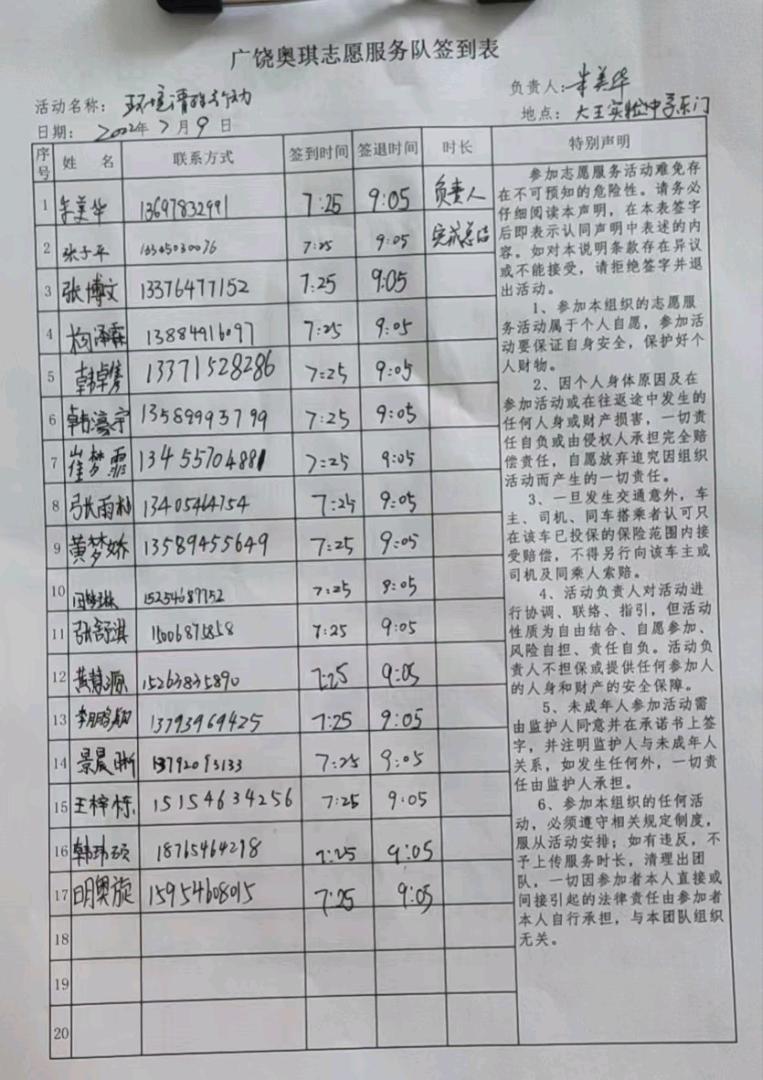 广饶奥琪志愿服务队签到表
活动名称： 环境清洁行动 负责人： 美华
日期： 2022年 7 月 9 日 地点： 大王实验中学东门
序号 姓 名 联系方式 签到时间 签退时间 时长 特别声明
1 美华 13697832991 7:25 9:05 负责人
2 张子平 7:25 9:05 完成总结
3 张博文 13376477152 7:25 9:05
4 13884916097 7:25 9:05
5 韩 13371528286 7:25 9:05
6 韩濠宇 13589993799 7:25 9:05
7 崔梦霏 13455704881 7:25 9:05
8 张雨 13405464754 7:25 9:05
9 黄梦娇 13589455649 7:25 9:05
10 15254687152 7:25 9:05
11 张舒淇 15006875858 7:25 9:05
12 黄慧源 15263835890 7:25 9:05
13 李鹏 13793969425 7:25 9:05
14 景晨晰 13792093133 7:25 9:05
15 王梓栋 15154634256 7:25 9:05
16 韩玮硕 18765464278 7:25 9:05
17 明奥旋 15954608015 7:25 9:05
18
19
20
参加志愿服务活动难免存
在不可预知的危险性。请务必
仔细阅读本声明，在本表签字
后即表示认同声明中表述的内
容。如对本说明条款存在异议
或不能接受，请拒绝签字并退
出活动。
1、参加本组织的志愿服
务活动属于个人自愿，参加活
动要保证自身安全，保护好个
人财物。
2、因个人身体原因及在
参加活动或在往返途中发生的
任何人身或财产损害，一切责
任自负或由侵权人承担完全赔
偿责任，自愿放弃追究因组织
活动而产生的一切责任。
3、一旦发生交通意外，车
主、司机、同车搭乘者认可只
在该车已投保的保险范围内接
受赔偿，不得另行向该车主或
司机及同乘人索赔。
4、活动负责人对活动进
行协调、联络、指引，但活动
性质为自由结合、自愿参加、
风险自担、责任自负。活动负
责人不担保或提供任何参加人
的人身和财产的安全保障。
5、未成年人参加活动需
由监护人同意并在承诺书上签
字，并注明监护人与未成年人
关系，如发生任何外，一切责
任由监护人承担。
6、参加本组织的任何活
动，必须遵守相关规定制度，
服从活动安排；如有违反，不
予上传服务时长，清理出团
队，一切因参加者本人直接或
间接引起的法律责任由参加者
本人自行承担，与本团队组织
无关。